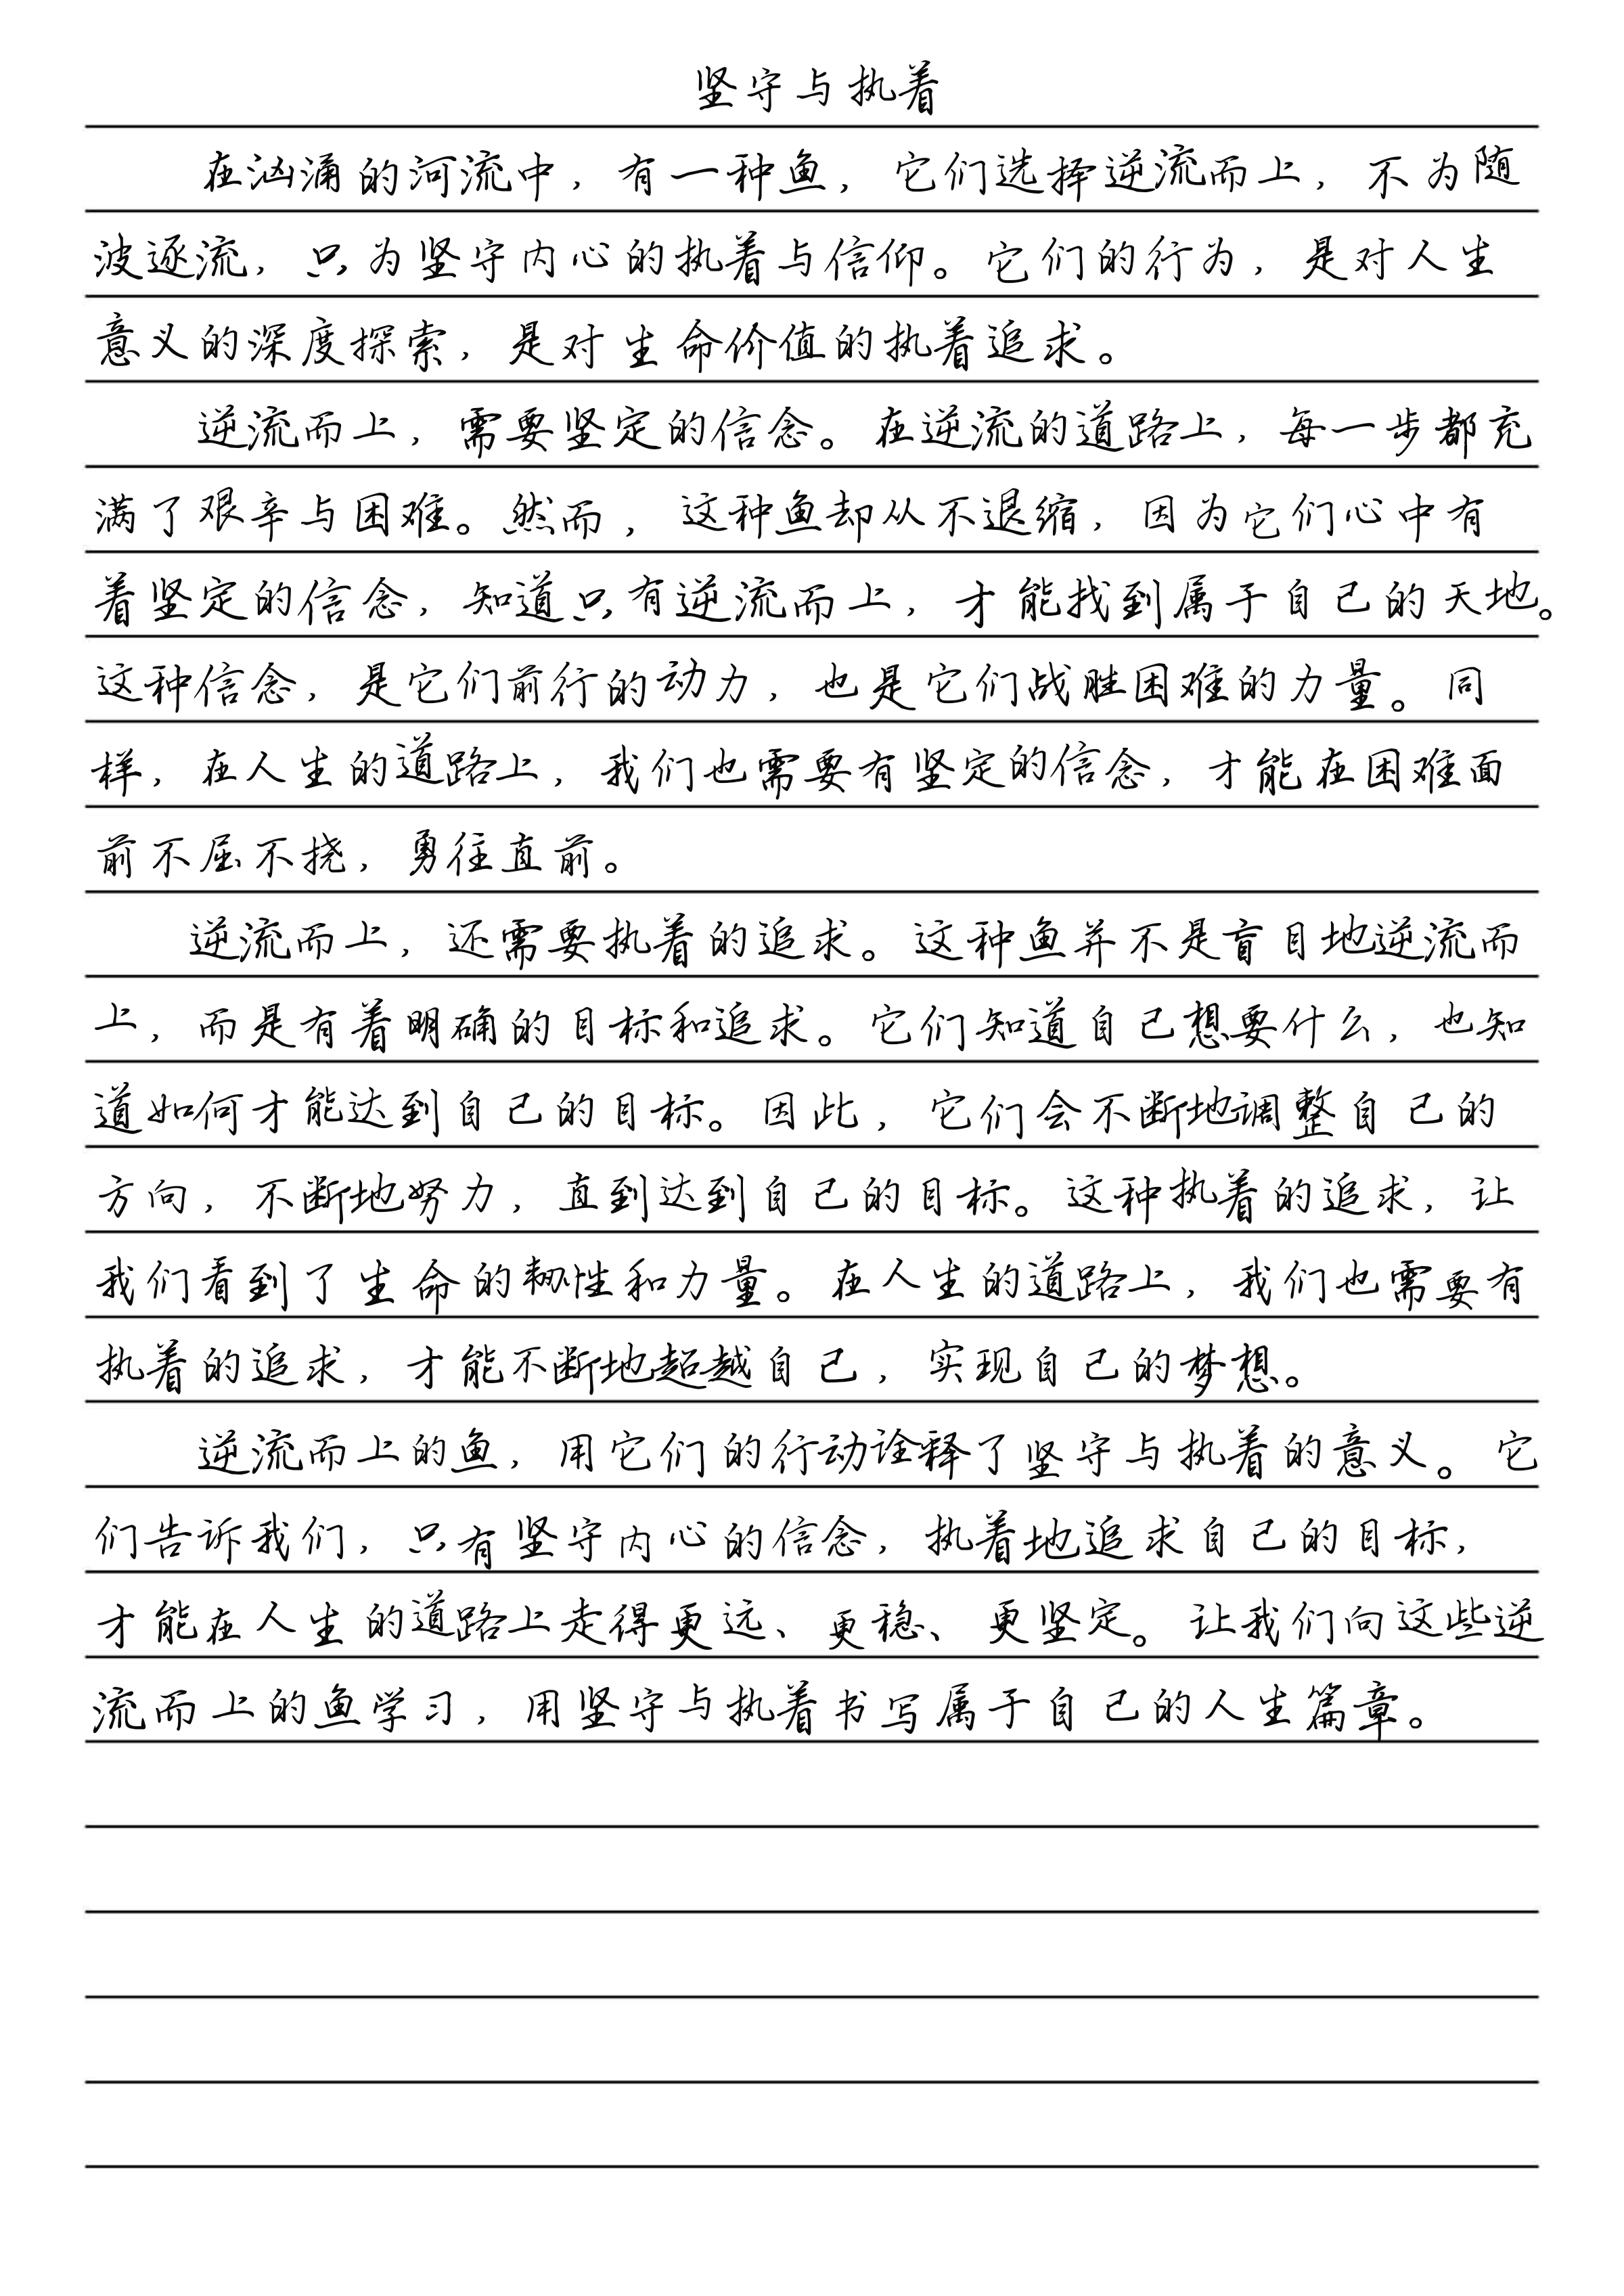 坚守与执着
在汹涌的河流中，有一种鱼，它们选择逆流而上，不为随
波逐流，只为坚守内心的执着与信仰。它们的行为，是对人生
意义的深度探索，是对生命价值的执着追求。
逆流而上，需要坚定的信念。在逆流的道路上，每一步都充
满了艰辛与困难。然而，这种鱼却从不退缩，因为它们心中有
着坚定的信念，知道只有逆流而上，才能找到属于自己的天地。
这种信念，是它们前行的动力，也是它们战胜困难的力量。同
样，在人生的道路上，我们也需要有坚定的信念，才能在困难面
前不屈不挠，勇往直前。
逆流而上，还需要执着的追求。这种鱼并不是盲目地逆流而
上，而是有着明确的目标和追求。它们知道自己想要什么，也知
道如何才能达到自己的目标。因此，它们会不断地调整自己的
方向，不断地努力，直到达到自己的目标。这种执着的追求，让
我们看到了生命的韧性和力量。在人生的道路上，我们也需要有
执着的追求，才能不断地超越自己，实现自己的梦想。
逆流而上的鱼，用它们的行动诠释了坚守与执着的意义。它
们告诉我们，只有坚守内心的信念，执着地追求自己的目标，
才能在人生的道路上走得更远、更稳、更坚定。让我们向这些逆
流而上的鱼学习，用坚守与执着书写属于自己的人生篇章。